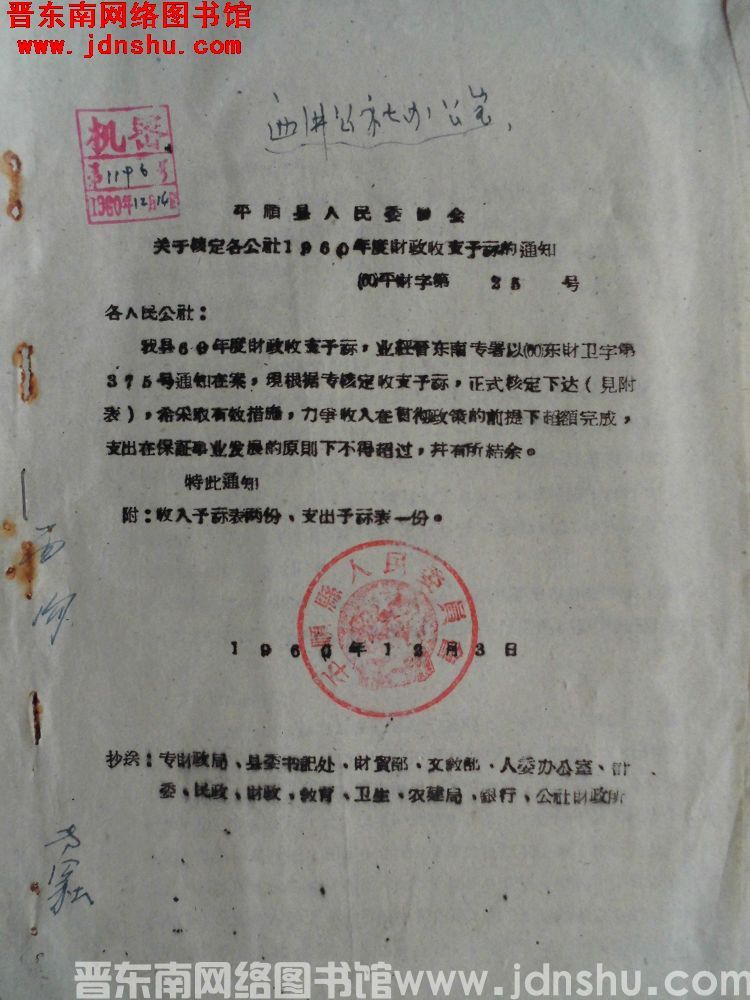 晋东南网络图书馆
www.jdnshu.com
公社办公室
机密
第1196号
1960年12月16日
平順县人民委員会
关于核定各公社1960年度財政收支予祘的通知
(60)平財字第 25 号
各人民公社：
我县60年度財政收支予祘，业經晋东南专署以(60)东財卫字第
375号通知在案，現根据专核定收支予祘，正式核定下达（見附
表），希采取有效措施，力爭收入在貫彻政策的前提下超額完成，
支出在保証事业发展的原則下不得超过，幷有所結余。
特此通知
附：收入予祘表两份、支出予祘表一份。
平順縣人民委員會
1960年12月3日
抄送：专財政局、县委书記处、財貿部、文教部、人委办公室、計
委、民政、財政、教育、卫生、农建局、銀行、公社財政所
晋东南网络图书馆www.jdnshu.com